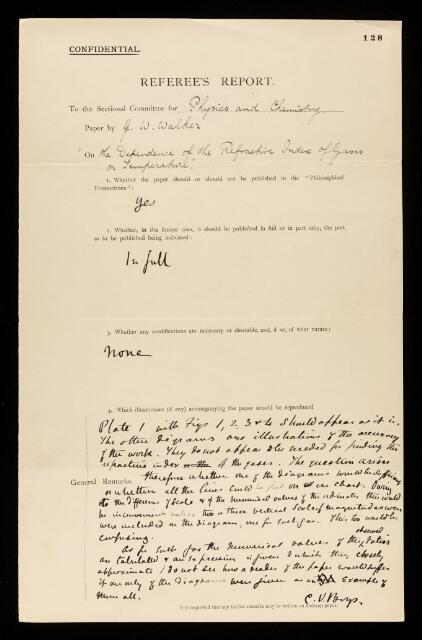 128
CONFIDENTIAL.
REFEREE'S REPORT.
To the Sectional Committee for Physics and Chemistry.
Paper by G. W. Walker
"On the Dependence of the Refractive Index of Gases
on Temperature."
1. Whether the paper should or should not be published in the "Philosophical
Transactions":
Yes
2. Whether, in the former case, it should be published in full or in part only, the part
so to be published being indicated:
In full
3. Whether any modifications are necessary or desirable, and, if so, of what nature:
None
4. Which illustrations (if any) accompanying the paper should be reproduced
Plate 1 with Figs 1, 2, 3 & 4 should appear as it is.
The other diagrams are illustrations of the accuracy
of the work. They do not appear to be needed for finding the
refractive index of the gases. The question arises
General Remarks.
therefore whether one of the diagrams would be sufficient
or whether all the lines could be put on one chart. Owing
to the difference of scale & of the numerical values of the ordinates this would
be inconvenient unless two or three vertical scales of magnitudes
were included in the diagram, one for each gas. This too would be
confusing.
As for each gas the numerical values of the
are tabulated & an expression is given which they closely
approximate I do not see how a reader of the paper would suffer
if one only of the diagrams were given as an example of
them all.
C. V. Boys.
It is requested that any further remarks may be written on foolscap paper.